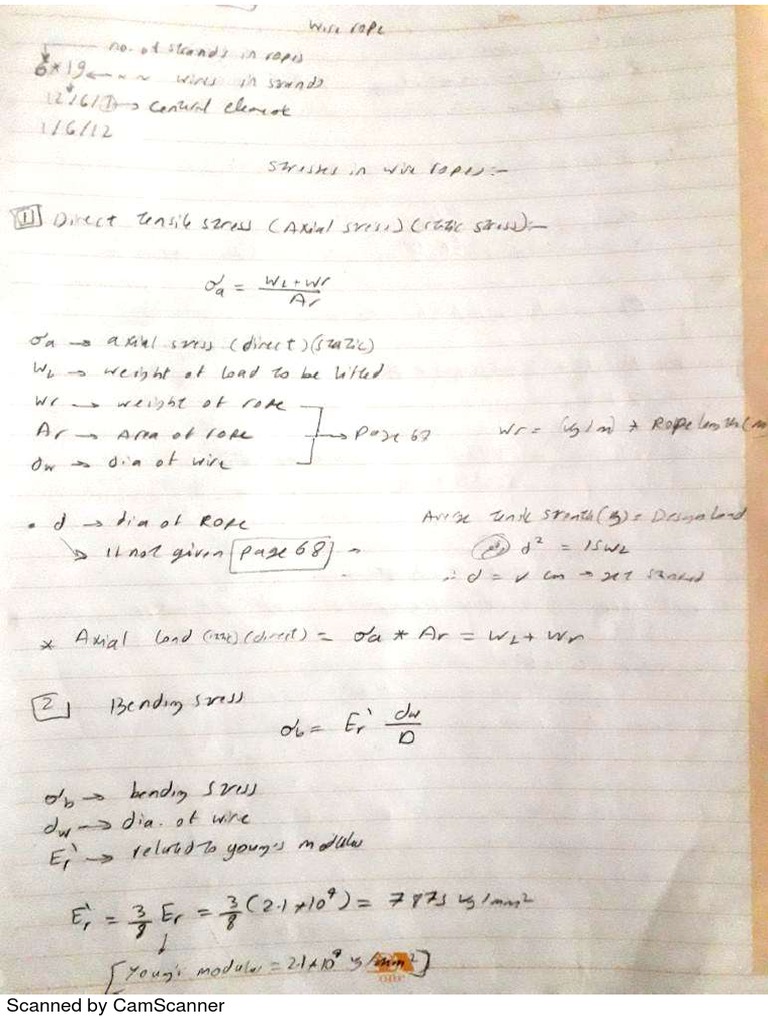 Wire rope
no. of strands in ropes
6 * 19 ← ~ ~ wires in strands
12/6/1 → central element
1/6/12
Stresses in wire ropes:-
[1] Direct tensile stress (Axial stress) (static stress):-
σa = WL+Wr / Ar
σa → axial stress (direct)(static)
WL → weight of load to be lifted
Wr → weight of rope
Ar → Area of rope → Page 67 Wr = (kg/m) * Rope length (m
dw → dia of wire
• d → dia of Rope tensile = Design load
↳ if not given [page 68] d² = 15WL
∴ d = ✓ cm → get
* Axial load (direct) = σa * Ar = WL + Wr
[2] Bending stress
σb = Er' dw/D
σb → bending stress
dw → dia. of wire
Er' → related to young's modulus
Er' = 3/8 Er = 3/8 (2.1*10⁴) = 7875 kg/mm²
[Young's modulus = 2.1*10⁴ kg/mm²]
Scanned by CamScanner